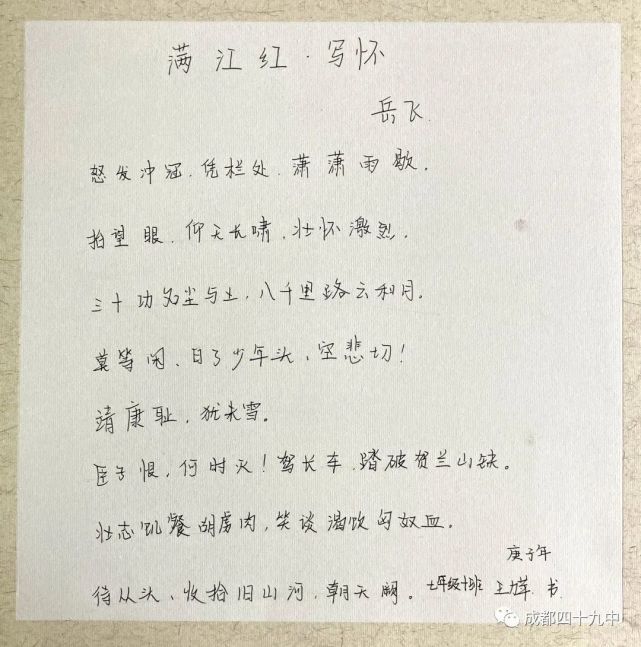 满江红·写怀
岳飞
怒发冲冠、凭栏处、潇潇雨歇。
抬望眼、仰天长啸、壮怀激烈。
三十功名尘与土，八千里路云和月。
莫等闲、白了少年头、空悲切！
靖康耻，犹未雪。
臣子恨，何时灭！驾长车、踏破贺兰山缺。
壮志饥餐胡虏肉，笑谈渴饮匈奴血。
待从头、收拾旧山河，朝天阙。
庚子年
七年级十班 王 书
成都四十九中